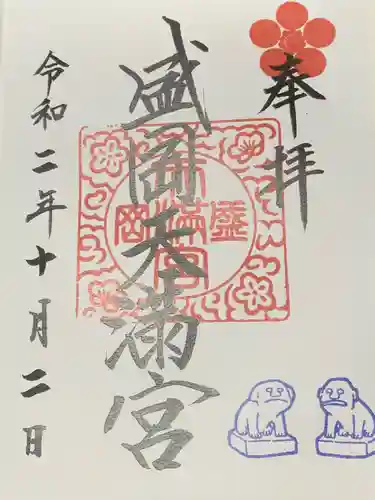 奉拝
盛岡天満宮
令和二年十月二日
天満宮
盛岡